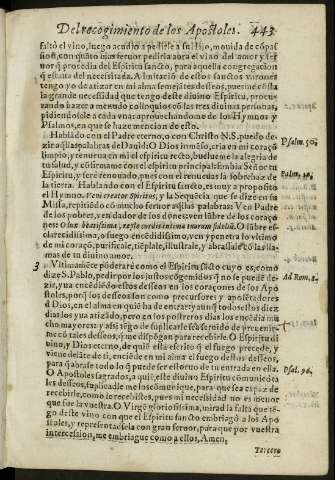 Del recogimiento de los Apostoles. 443
faltò el vino, luego acudio a pedirle a su Hijo, mouida de cõpas
sion, con quãto mas feruor pediria aora el vino del amor y fer
uor q̃ procedia del Espiritu sancto, para aquella congregacion
q̃ estaua del necessitada. A imitaciõ de estos sanctos varones
tengo yo de atizar en mi alma semejãtes desseos, pues me insta
la grande necessidad que tengo deste diuino Espiritu, procu-
rando hazer a menudo colloquios cõ las tres diuinas personas,
pidiendosele a cada vna: aprouechandome de los Hymnos y
Psalmos, en que se haze mencion de esto.
Hablãdo con el Padre eterno, o con Christo N.S. puedo de-
zir aq̃llas palabras de Dauid: O Dios inmẽso, cria en mi coraçõ
limpio, y renueua en mi el espiritu recto, buelueme la alegria de
tu salud, y cõfirmame con el espiritu principal: Embia Señor tu
Espiritu, y serè renouado, pues con el renueuas la sobrehaz de
la tierra. Hablando con el Espiritu sancto, es muy a proposito
el Hymno. Veni creator Spiritus, y la Sequecia que se dize en su
Missa, repitiẽdo cõ mucho feruor aq̃llas palabras: Ven Padre
de los pobres, ven dador de los dones: ven lũbre de los coraço
nes: O lux beatissima, reple cordis intima tuorum fidelium. O lũbre es-
clarecidissima, o fuego encẽdidissimo, ven y penetra lo vltimo
de mi coraçõ, purificale, tiẽplale, illustrale, y abrasale cõ las lla-
mas de tu diuino amor.
3 Vltimamẽte põderarè como el Espiritu sãcto cuyo es, como
dize S. Pablo, pedir por los justos cõ gemidos q̃ no se puedẽ de-
zir, yua encẽdiẽdo estos desseos en los coraçones de los Apo
stoles, porq̃ los desseos son como precursores y aposẽtadores
d̃ Dios, en el alma en quiẽ ha de entrar: y aunq̃ todos estos diez
dias los yua atizãdo, pero en los postreros dias los encẽdia mu
cho mayores: y assi tẽgo de suplicarle sea seruido de preuenir-
me cõ tales desseos, q̃ me dispõgan para recebirle. O Espiritu di
uino, y Dios eterno, de quiẽ està escrito q̃ el fuego precede, y
viene delãte de ti, enciẽde en mi alma el fuego destos desseos,
para q̃ abrase todo lo q̃ puede ser estoruo de tu entrada en ella.
O Apostoles sagrados, a quiẽ este diuino Espiritu comunicò ta
les desseos, suplicadle me los comunique, para que sea capaz de
recebirle, como le recebistes, pues mi necessidad no es menor
que fue la vuestra. O Virgẽ gloriosissima, mirad la falta que tẽ-
go deste vino con que el Espiritu sancto embriagò a los Apo
stoles, y representadsela con gran feruor, para que por vuestra
intercession, me embriague como a ellos, Amen.
Tercero
Psalm. 50.
Ad Rom. 8.
Psal. 96.